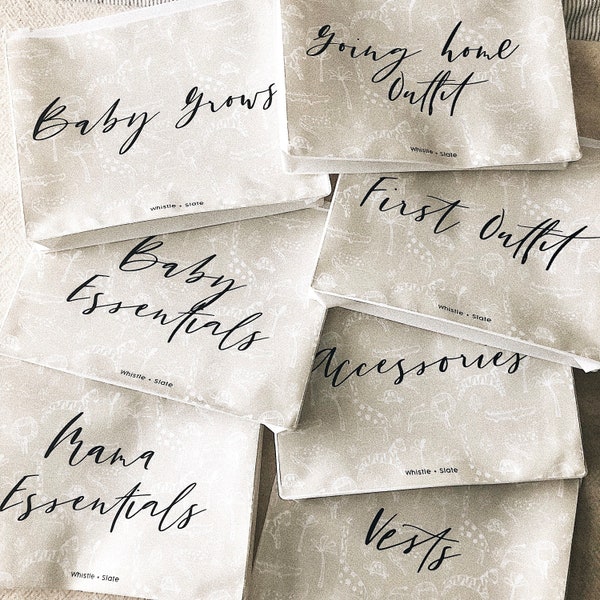 Baby Grows
Whistle + Slate
Going home
Outfit
Whistle + Slate
First Outfit
Whistle + Slate
Baby
Essentials
Whistle + Slate
Accessories
Whistle + Slate
Mama
Essentials
Whistle + Slate
Vests